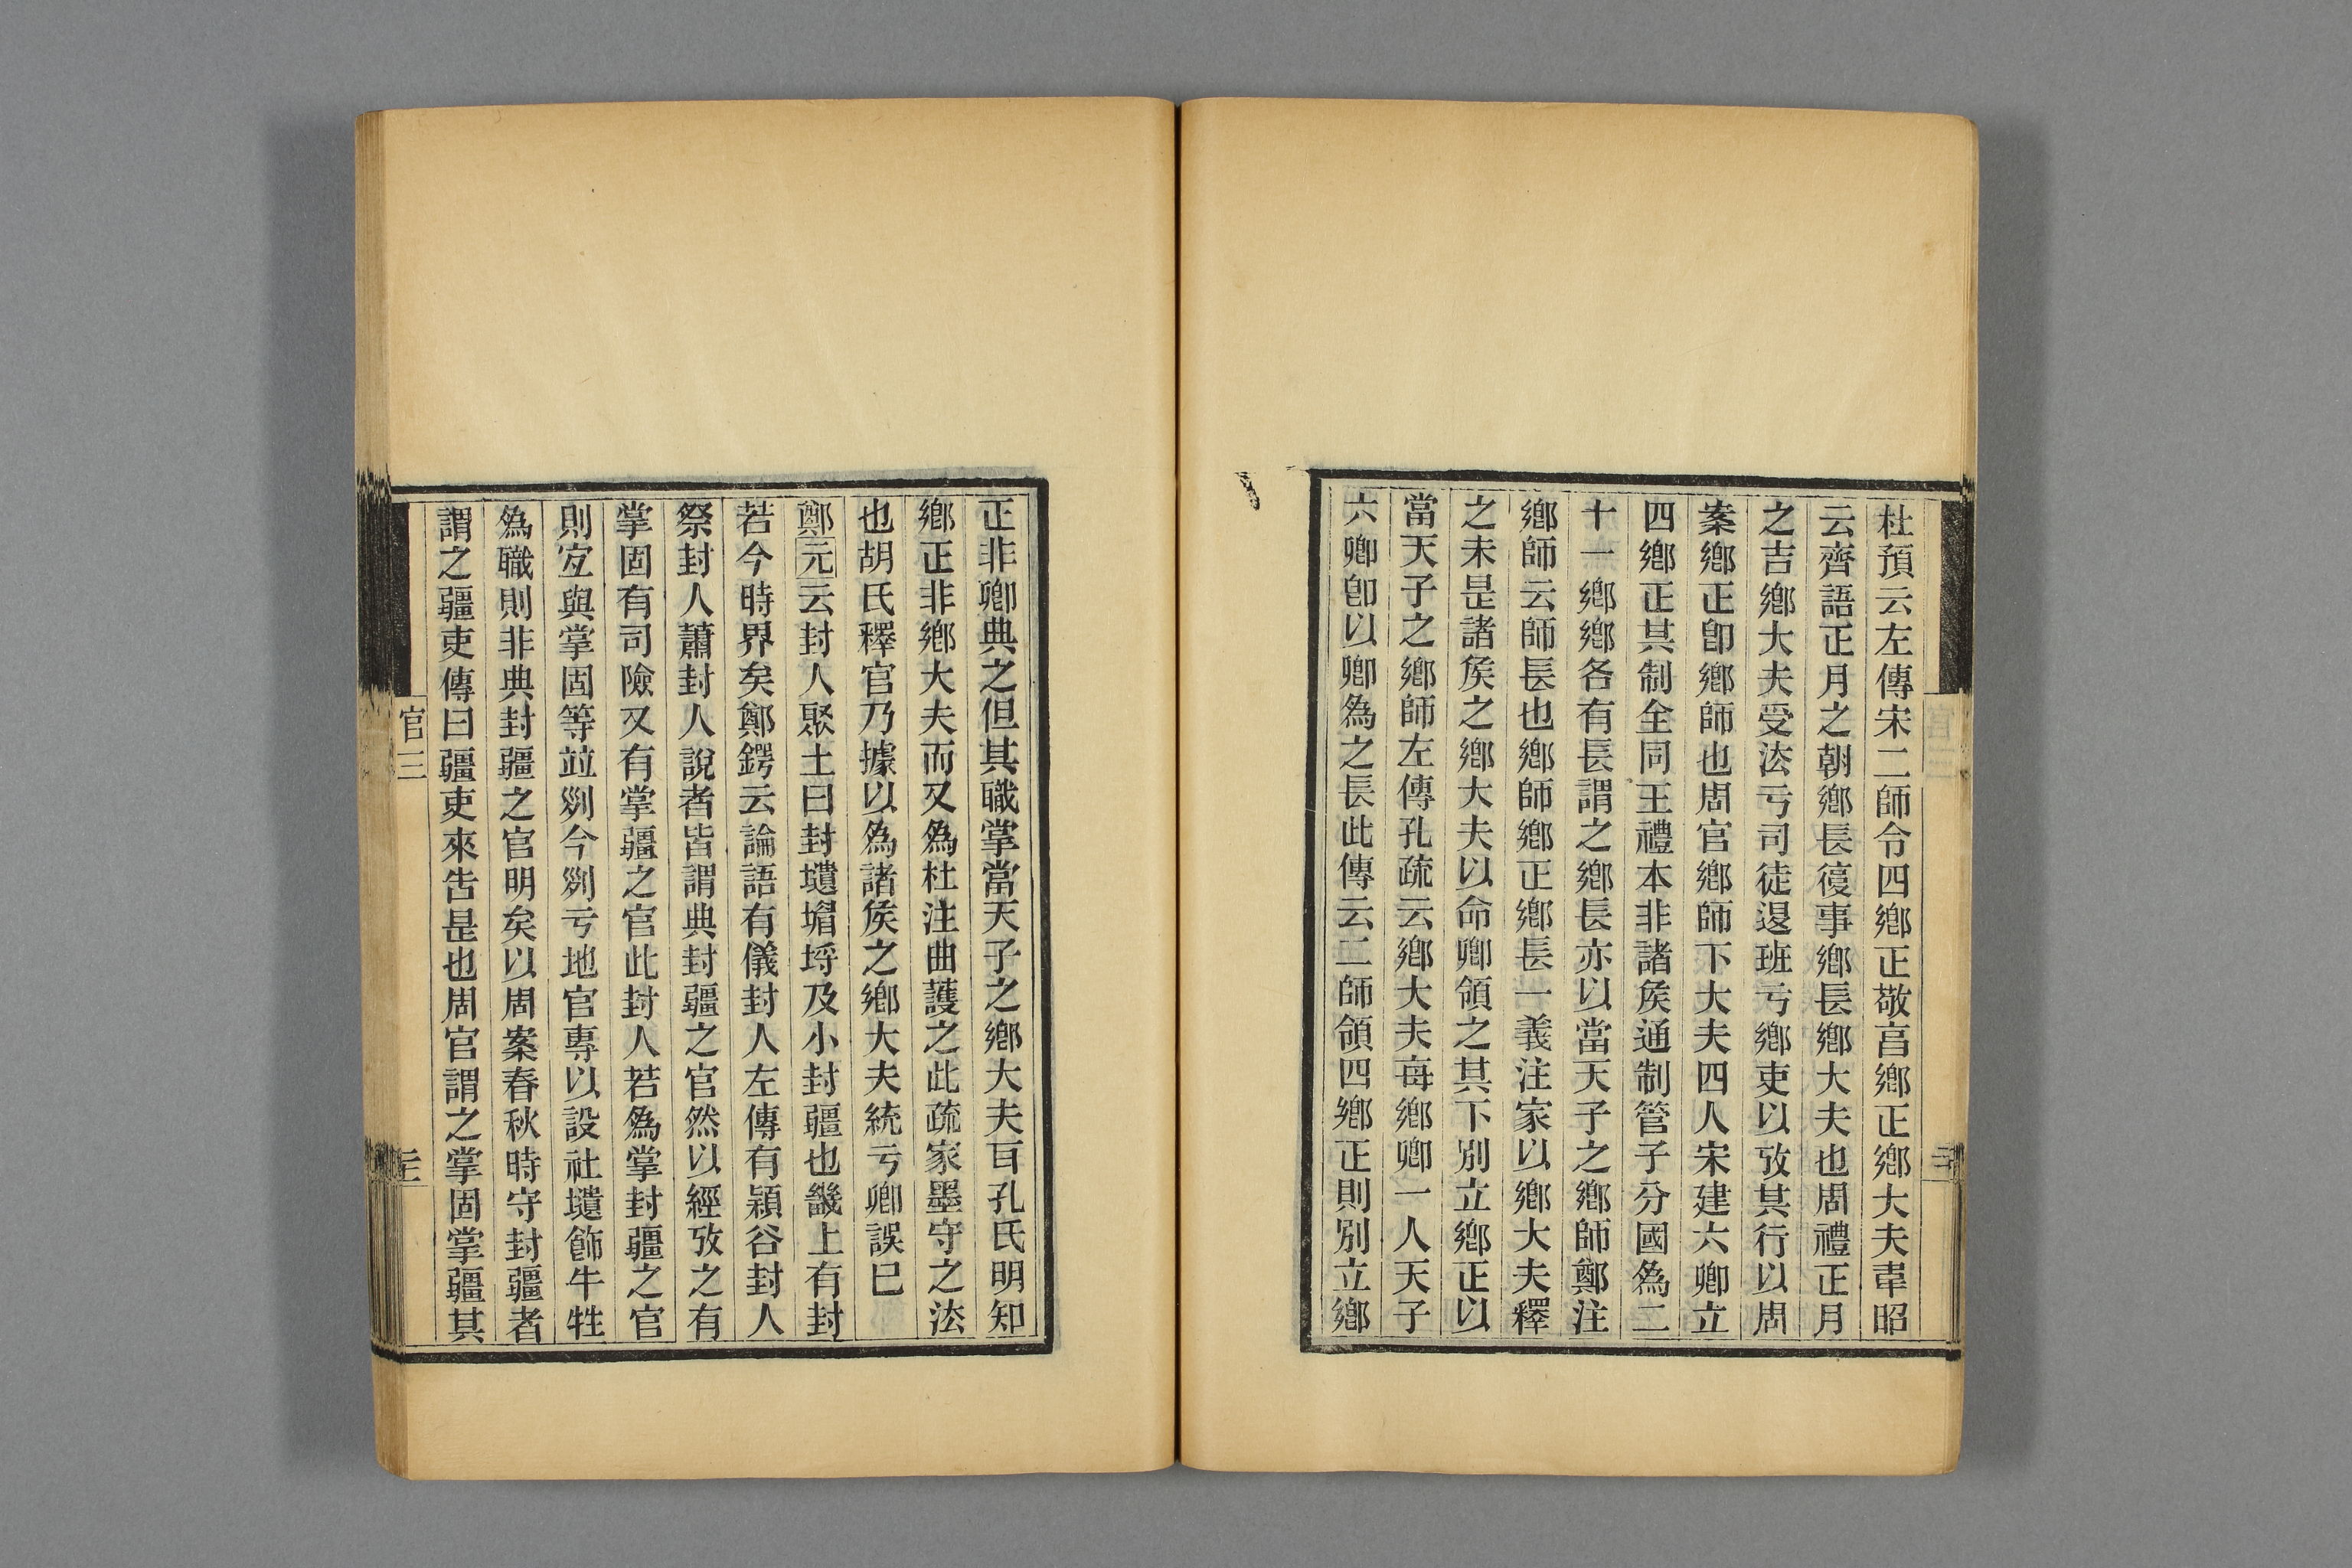 杜預云左傳宋二師令四鄉正敬亯鄉正鄉大夫韋昭
云齊語正月之朝鄉長復事鄉長鄉大夫也周禮正月
之吉鄉大夫受法亏司徒退班亏鄉吏以攷其行以周
案鄉正卽鄉師也周官鄉師下大夫四人宋建六卿立
四鄉正其制全同王禮本非諸矦通制管子分國爲二
十一鄉鄉各有長謂之鄉長亦以當天子之鄉師鄭注
鄉師云師長也鄉師鄉正鄉長一義注家以鄉大夫釋
之未是諸矦之鄉大夫以命卿領之其下別立鄉正以
當天子之鄉師左傳孔疏云鄉大夫每鄉卿一人天子
六卿卽以卿爲之長此傳云二師領四鄉正則別立鄉
正非卿典之但其職掌當天子之鄉大夫耳孔氏明知
鄉正非鄉大夫而又爲杜注曲護之此疏家墨守之法
也胡氏釋官乃據以爲諸矦之鄉大夫統亏卿誤已
鄭元云封人聚土曰封壝堳埒及小封疆也畿上有封
若今時界矣鄭鍔云論語有儀封人左傳有穎谷封人
祭封人蕭封人說者皆謂典封疆之官然以經攷之有
掌固有司險又有掌疆之官此封人若爲掌封疆之官
則宐與掌固等竝列今列亏地官專以設社壝飾牛牲
爲職則非典封疆之官明矣以周案春秋時守封疆者
謂之疆吏傳曰疆吏來告是也周官謂之掌固掌疆其
官三